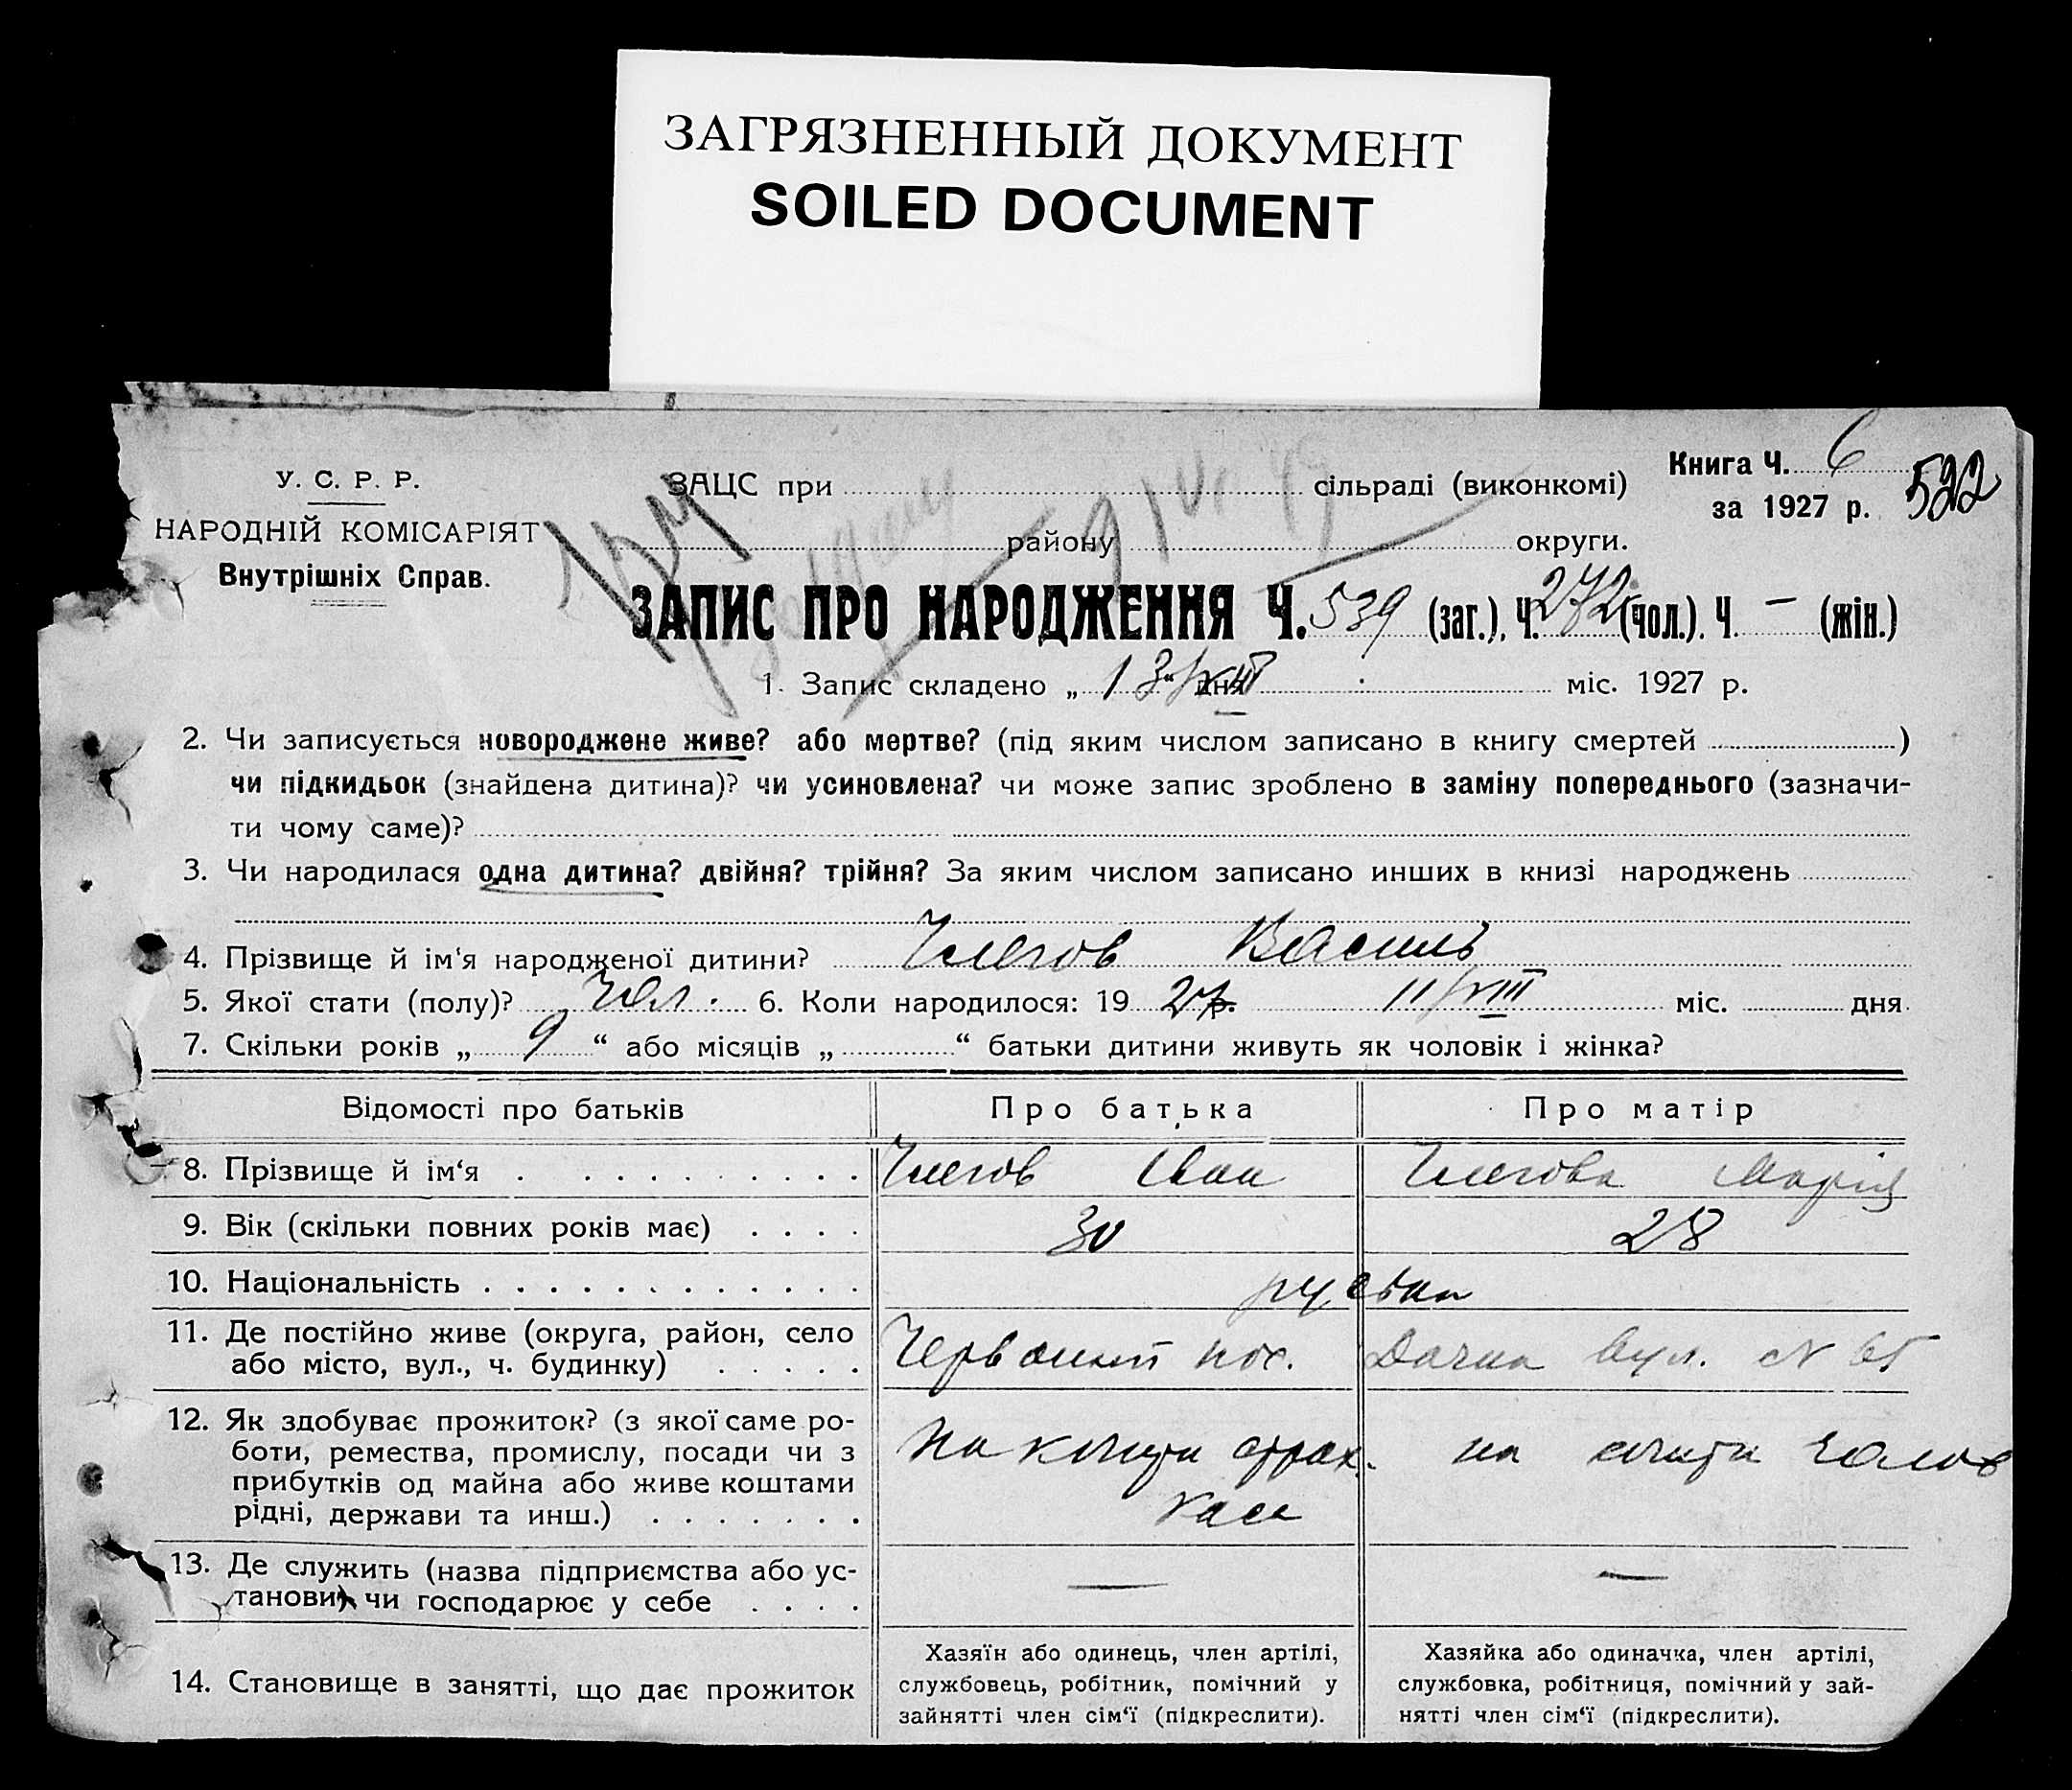 ЗАГРЯЗНЕННЫЙ ДОКУМЕНТ
SOILED DOCUMENT
У. С. Р. Р.
НАРОДНІЙ КОМІСАРІЯТ
Внутрішніх Справ.
ЗАЦС при сільраді (виконкомі)
району округи.
Книга Ч. 6
за 1927 р. 522
ЗАПИС ПРО НАРОДЖЕННЯ Ч. 539 (заг.), Ч. 272 (чол.). Ч. — (жін.)
1. Запис складено „ 13 “ дня VIII міс. 1927 р.
2. Чи записується новороджене живе? або мертве? (під яким числом записано в книгу смертей )
чи підкидьок (знайдена дитина)? чи усиновлена? чи може запис зроблено в заміну попереднього (зазначи-
ти чому саме)?
3. Чи народилася одна дитина? двійня? трійня? За яким числом записано инших в книзі народжень
4. Прізвище й ім‘я народженої дитини? Василь
5. Якої стати (полу)? Чол. 6. Коли народилося: 19 27 р. 11/VIII міс. дня
7. Скільки років „ 9 “ або місяців „ “ батьки дитини живуть як чоловік і жінка?
Відомості про батьків Про батька Про матір
8. Прізвище й ім‘я Іван Марія
9. Вік (скільки повних років має) 30 28
10. Національність руські
11. Де постійно живе (округа, район, село
або місто, вул., ч. будинку) Червоний пос. Дачна вул. N 65
12. Як здобуває прожиток? (з якої саме ро-
боти, ремества, промислу, посади чи з
прибутків од майна або живе коштами
рідні, держави та инш.) На кошти страх. каси на кошти чолов
13. Де служить (назва підприємства або ус-
танови) чи господарює у себе — —
14. Становище в занятті, що дає прожиток
Хазяїн або одинець, член артілі,
службовець, робітник, помічний у
зайнятті член сім‘ї (підкреслити).
Хазяйка або одиначка, член артілі,
службовка, робітниця, помічний у зай-
нятті член сім‘ї (підкреслити).